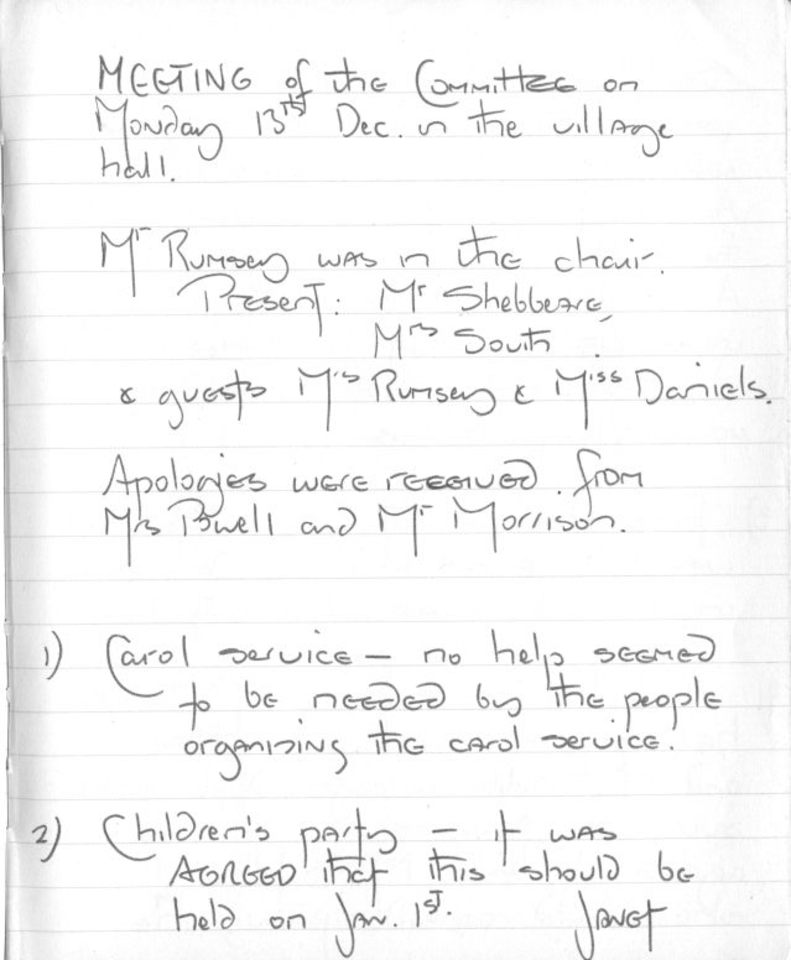 MEETING of the Committee on
Monday 13th Dec. in the village
hall.
Mr Rumsey was in the chair.
Present: Mr Shebbeare,
Mrs South.
& guests Mrs Rumsey & Miss Daniels.
Apologies were received from
Mrs Powell and Mr Morrison.
1) Carol service – no help seemed
to be needed by the people
organising the carol service.
2) Children's party – it was
AGREED that this should be
held on Jan. 1st. Janet